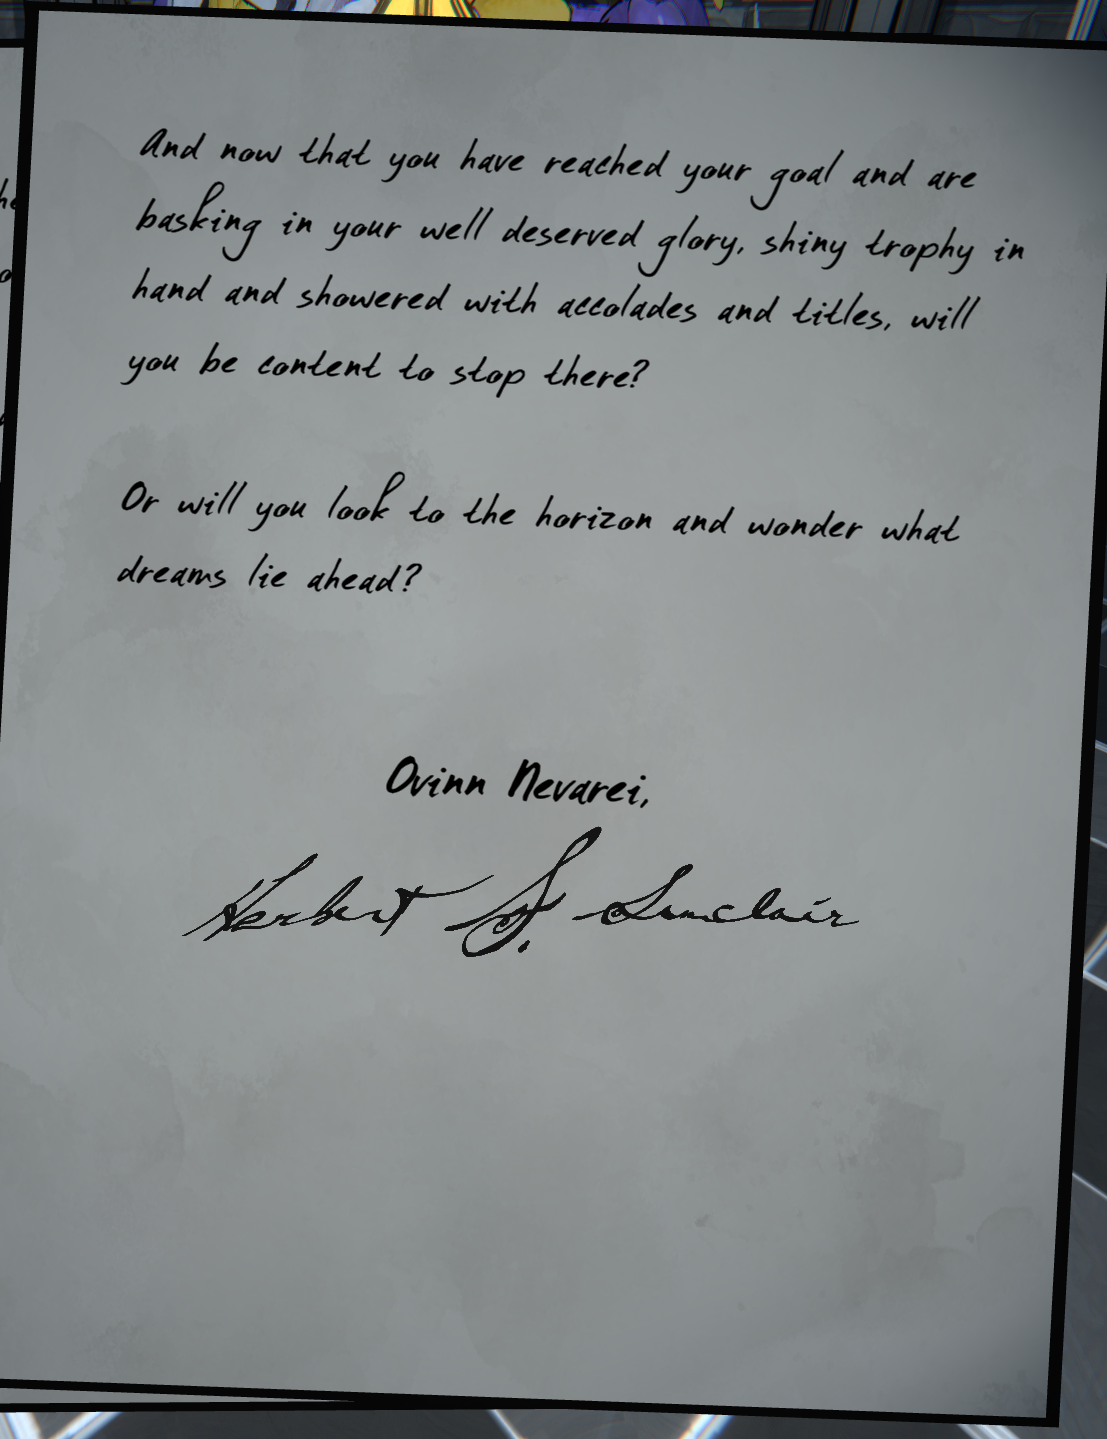 And now that you have reached your goal and are
basking in your well deserved glory, shiny trophy in
hand and showered with accolades and titles, will
you be content to stop there?
Or will you look to the horizon and wonder what
dreams lie ahead?
Ovinn Nevarei,
Herbert S. Sinclair